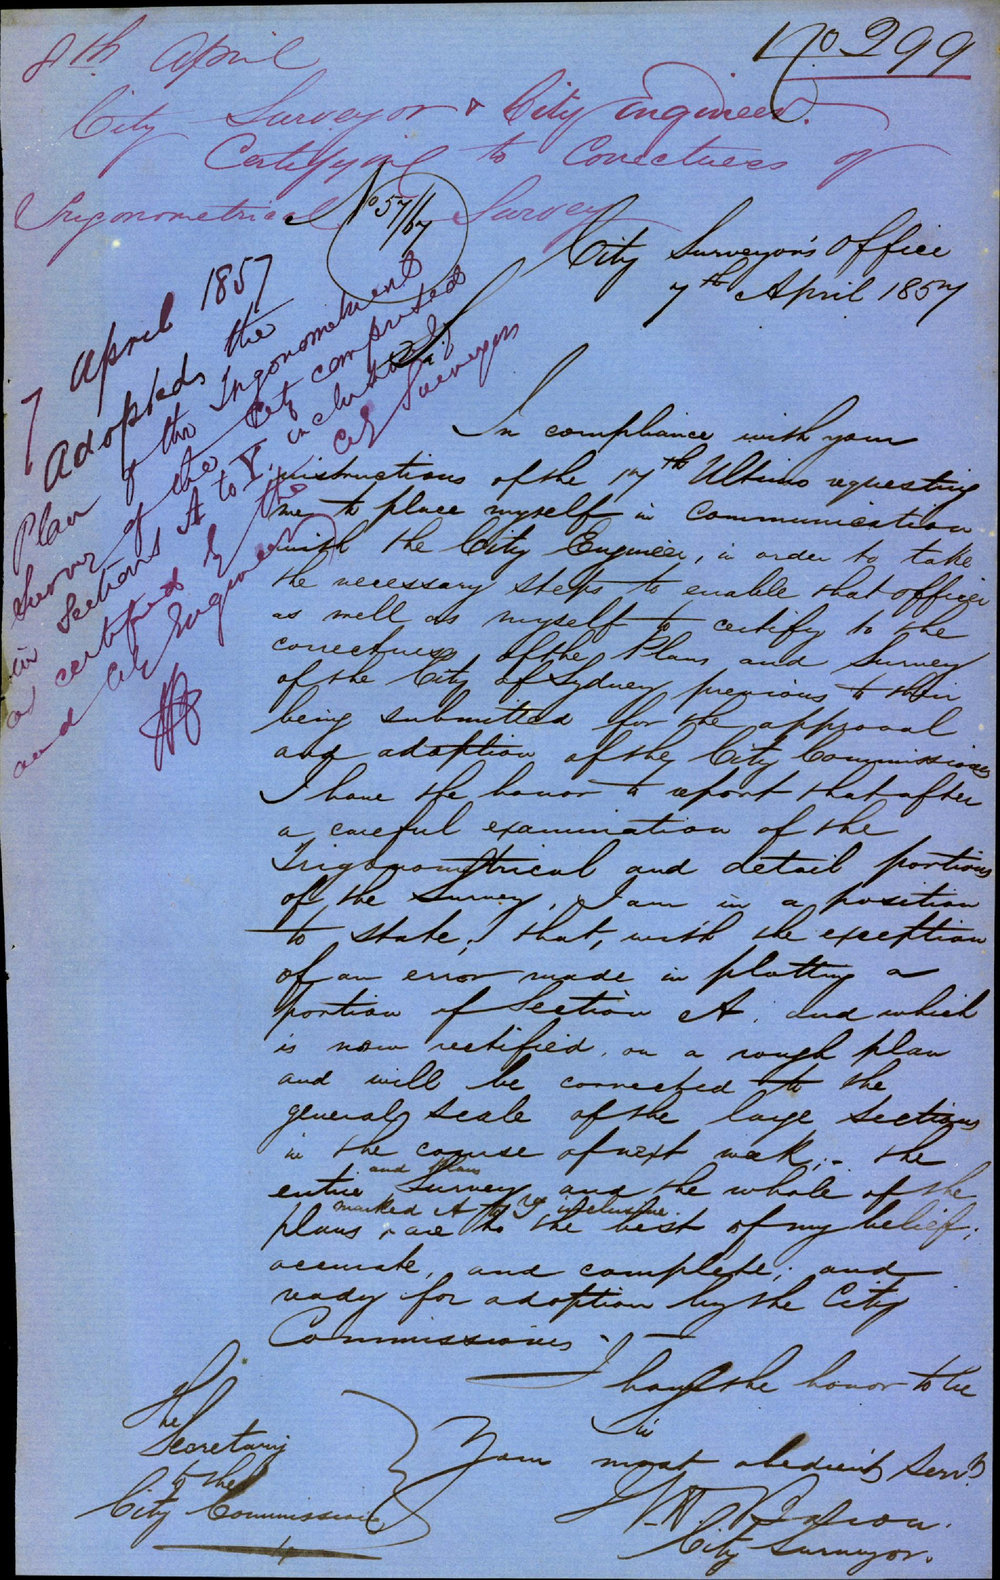 No 299
8th April
City Surveyor & City Engineer.
Certifying to Correctness of
Trigonometrical Survey
No 57/67
City Surveyor's Office
7th April 1857
7 April 1857
Adopted the
Plan of the Trigonometrical
Survey of the City comprised
in Sections A to Y. inclusively
as certified by the City Surveyor
and City Engineer
Sir.
In compliance with your
instructions of the 17th Ultimo requesting
me to place myself in communication
with the City Engineer, in order to take
the necessary steps to enable that officer
as well as myself to certify to the
correctness of the Plans and Survey
of the City of Sydney previous to their
being submitted for the approval
and adoption of the City Commissioners
I have the honor to report that after
a careful examination of the
Trigonometrical and detail portions
of the Survey, I am in a position
to state, that, with the exception
of an error made in plotting a
portion of Section A. and which
is now rectified on a rough plan
and will be connected to the
general scale of the large Sections
in the course of next week;- the
entire Survey and the whole of the
plans marked A to Y inclusive are to the best of my belief;
accurate, and complete; and
ready for adoption by the City
Commissioners.-
I have the honor to be
Sir
Your most obedient Servt
City Surveyor.
The
Secretary
to the
City Commissioners